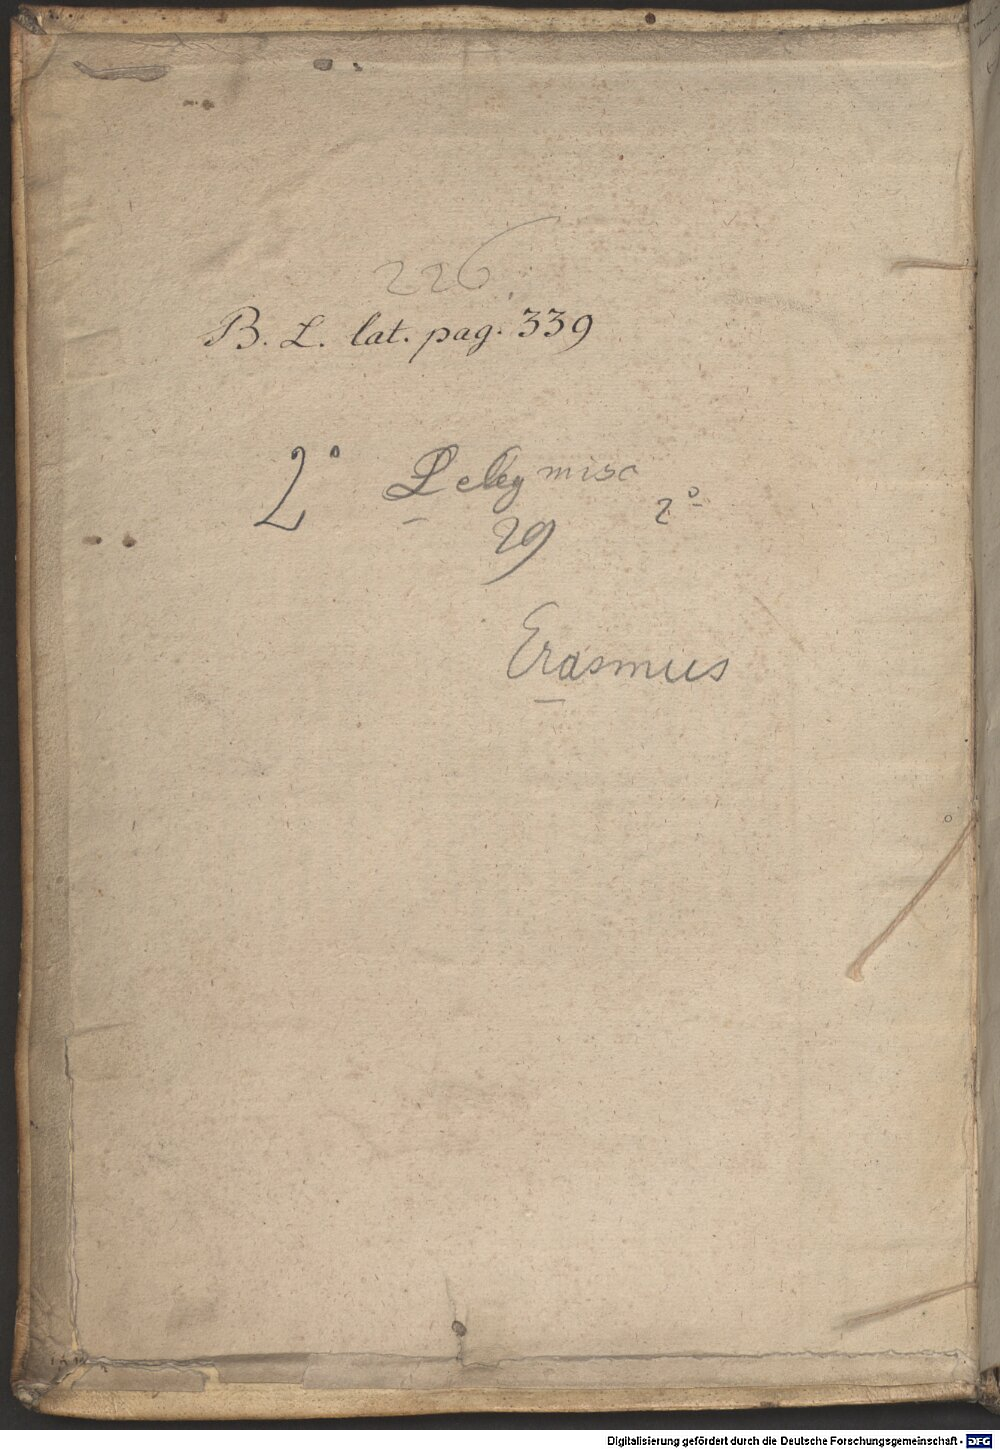 226
B. L. lat. pag. 339
2° misc 2°
29
Erasmus
Digitalisierung gefördert durch die Deutsche Forschungsgemeinschaft - DFG